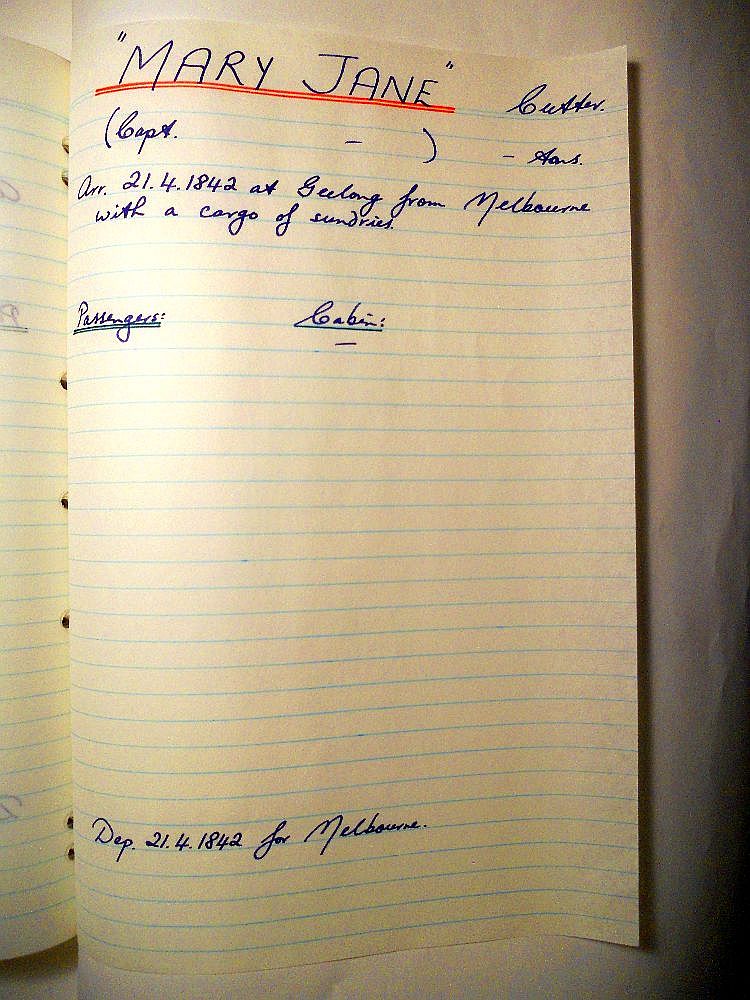 "MARY JANE" Cutter.
(Capt. - ) - tons.
Arr. 21.4.1842 at Geelong from Melbourne
with a cargo of sundries.
Passengers: Cabin:
-
Dep. 21.4.1842 for Melbourne.